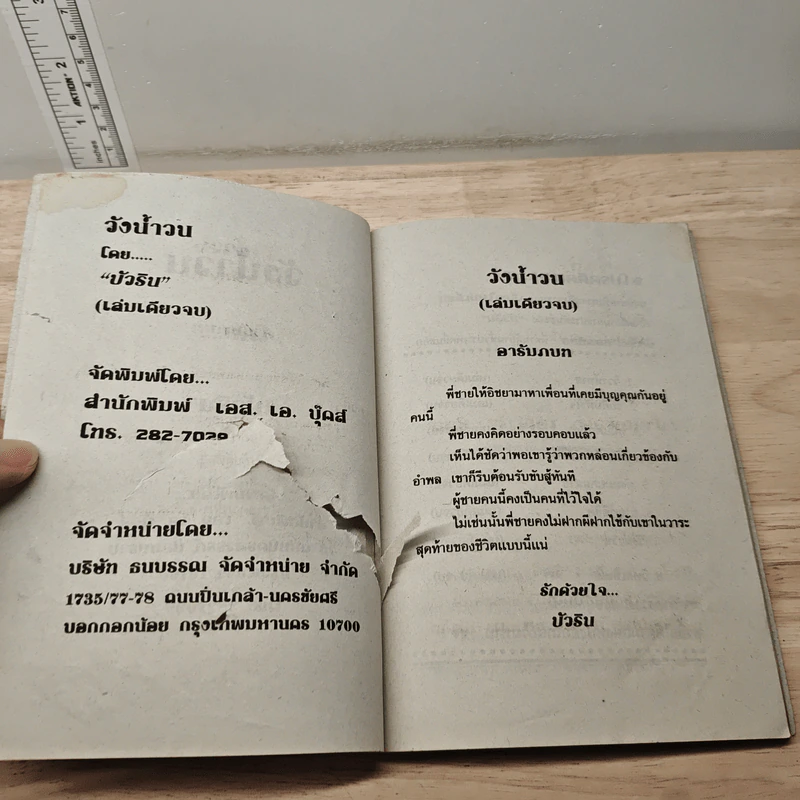 วังน้ำวน
โดย.....
“บัวริน”
(เล่มเดียวจบ)
จัดพิมพ์โดย...
สำนักพิมพ์ เอส. เอ. บุ๊คส์
โทร. 282-7029
จัดจำหน่ายโดย...
บริษัท ธนบรรณ จัดจำหน่าย จำกัด
1735/77-78 ถนนปิ่นเกล้า-นครชัยศรี
บอกกอกน้อย กรุงเทพมหานคร 10700
วังน้ำวน
(เล่มเดียวจบ)
อารัมภบท
พี่ชายให้อิชยามาหาเพื่อนที่เคยมีบุญคุณกันอยู่
คนนี้
พี่ชายคงคิดอย่างรอบคอบแล้ว
เห็นได้ชัดว่าพอเขารู้ว่าพวกหล่อนเกี่ยวข้องกับ
อำพล เขาก็รีบต้อนรับขับสู้ทันที
ผู้ชายคนนี้คงเป็นคนที่ไว้ใจได้
ไม่เช่นนั้นพี่ชายคงไม่ฝากผีฝากไข้กับเขาในวาระ
สุดท้ายของชีวิตแบบนี้แน่
รักด้วยใจ...
บัวริน
AKTION
inches
1
2